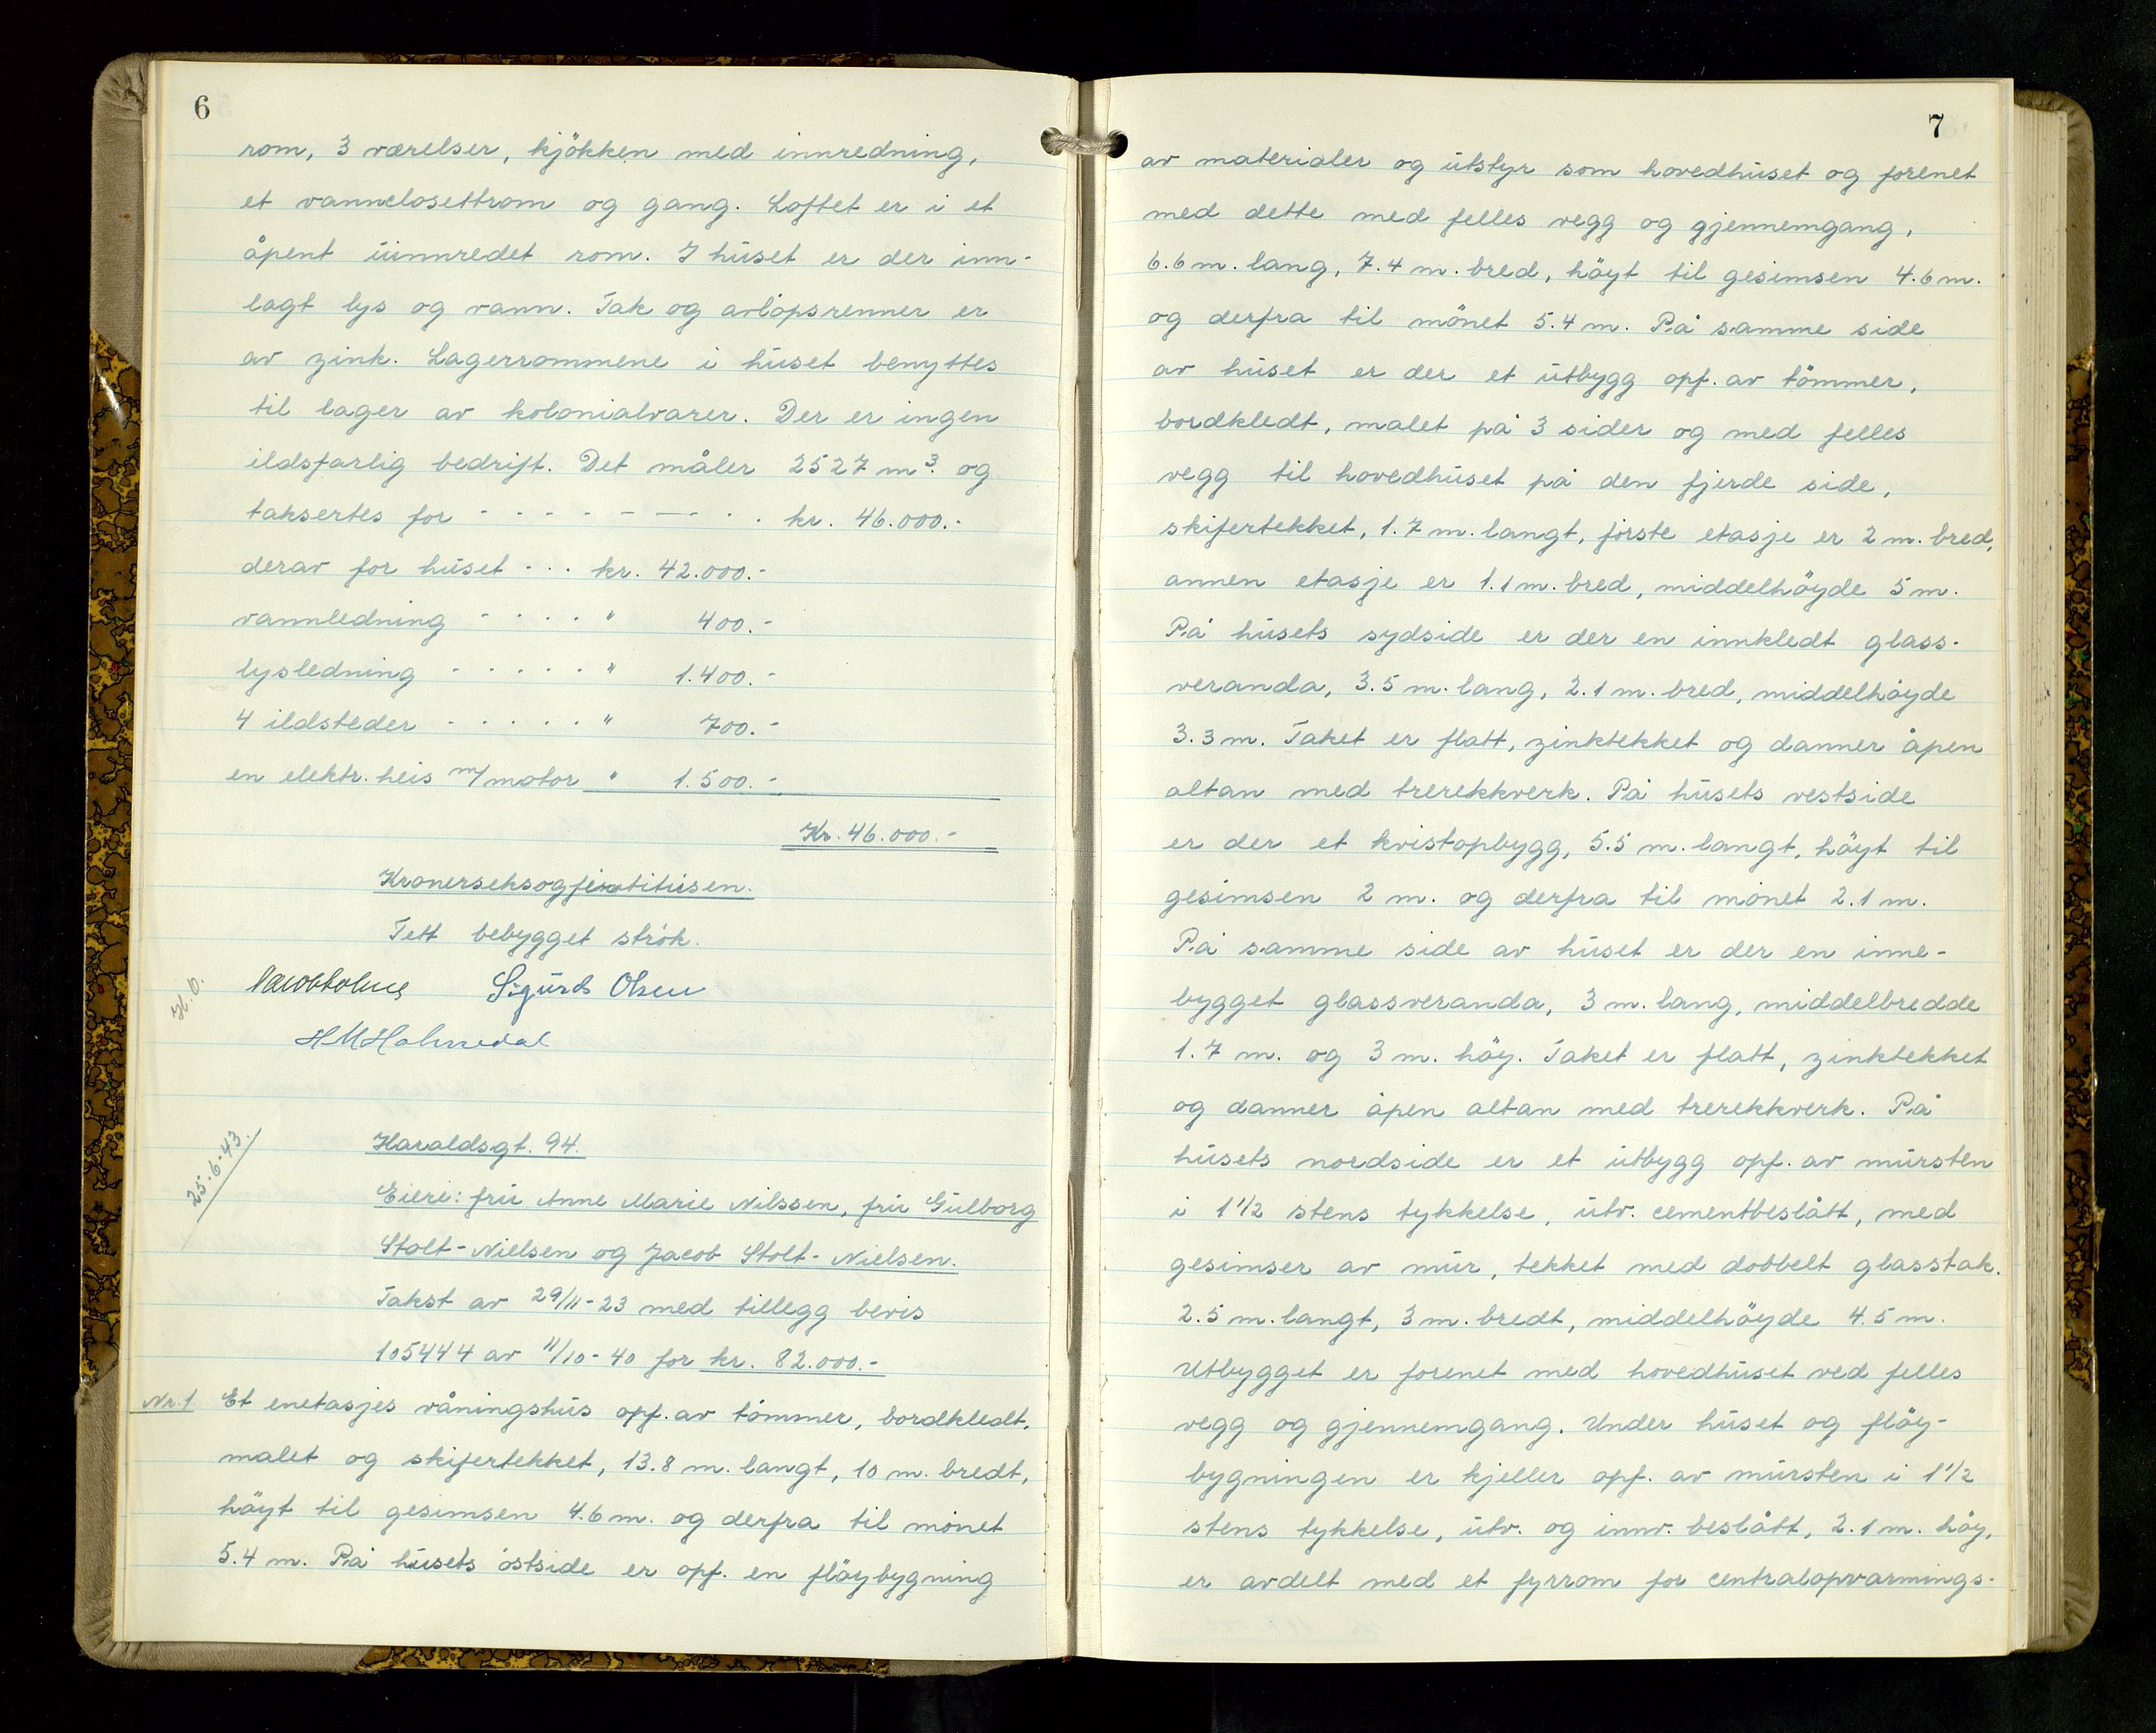 6
rom, 3 værelser, kjökken med innredning,
et vannclosettrom og gang. Loftet er i et
åpent uinnredet rom. I huset er der inn-
lagt lys og vann. Tak og avlöpsrenner er
av zink. Lagerrommene i huset benyttes
til lager av kolonialvarer. Der er ingen
ildsfarlig bedrift. Det måler 2527 m³. og
taksertes for - - - - - - - - - kr. 46.000.-
derav for huset - - - kr. 42.000.-
vannledning - - - - " 400.-
lysledning - - - - - " 1.400.-
4 ildsteder - - - - - " 700.-
en elektr. heis m/motor " 1.500.-
Kr. 46.000.-
Kronerseksogfirtitusen.
Tett bebygget strök.
H.O.
Sigurd Olsen
H M Holmedal
25.6-43.
Haraldsgt. 94.
Eiere: fru Anne Marie Nilssen, fru Gulborg
Stolt-Nielsen og Jacob Stolt-Nielsen.
Takst av 29/11-23 med tillegg bevis
105444 av 11/10-40 for kr. 82.000.-
Nr. 1. Et enetasjes våningshus opf. av tömmer, bordkledt,
malet og skifertekket, 13.8 m. langt, 10 m. bredt,
höyt til gesimsen 4.6 m. og derfra til mönet
5.4 m. På husets östside er opf. en flöybygning
7
av materialer og utstyr som hovedhuset og forenet
med dette med felles vegg og gjennemgang,
6.6 m. lang, 7.4 m. bred, höyt til gesimsen 4.6 m.
og derfra til mönet 5.4 m. På samme side
av huset er der et utbygg opf. av tömmer,
bordkledt, malet på 3 sider og med felles
vegg til hovedhuset på den fjerde side,
skifertekket, 1.7 m. langt, förste etasje er 2 m. bred,
annen etasje er 1.1 m. bred, middelhöyde 5 m.
På husets sydside er der en innkledt glass-
veranda, 3.5 m. lang, 2.1 m. bred, middelhöyde
3.3 m. Taket er flatt, zinktekket og danner åpen
altan med trerekkverk. På husets vestside
er der et kvistopbygg, 5.5 m. langt, höyt til
gesimsen 2 m. og derfra til mönet 2.1 m.
På samme side av huset er der en inne-
bygget glassveranda, 3 m. lang, middelbredde
1.7 m. og 3 m. höy. Taket er flatt, zinktekket
og danner åpen altan med trerekkverk. På
husets nordside er et utbygg opf. av mursten
i 1 1/2 stens tykkelse, utv. cementbeslått, med
gesimser av mur, tekket med dobbelt glasstak.
2.5 m. langt, 3 m. bredt, middelhöyde 4.5 m.
Utbygget er forenet med hovedhuset ved felles
vegg og gjennemgang. Under huset og flöy-
bygningen er kjeller opf. av mursten i 1 1/2
stens tykkelse, utv. og innv. beslått, 2.1 m. höy,
er avdelt med et fyrrom for centralopvarmings-